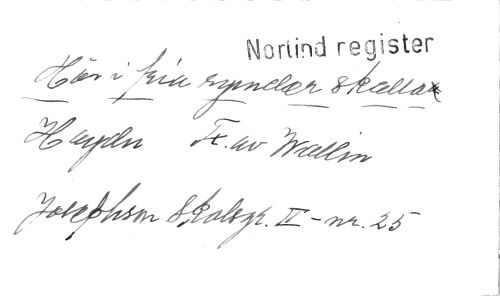 Norlind register
Hör i fria rymder skalla
Haydn Tx. av Wallin
Josephson Skolsgr. II - nr. 25